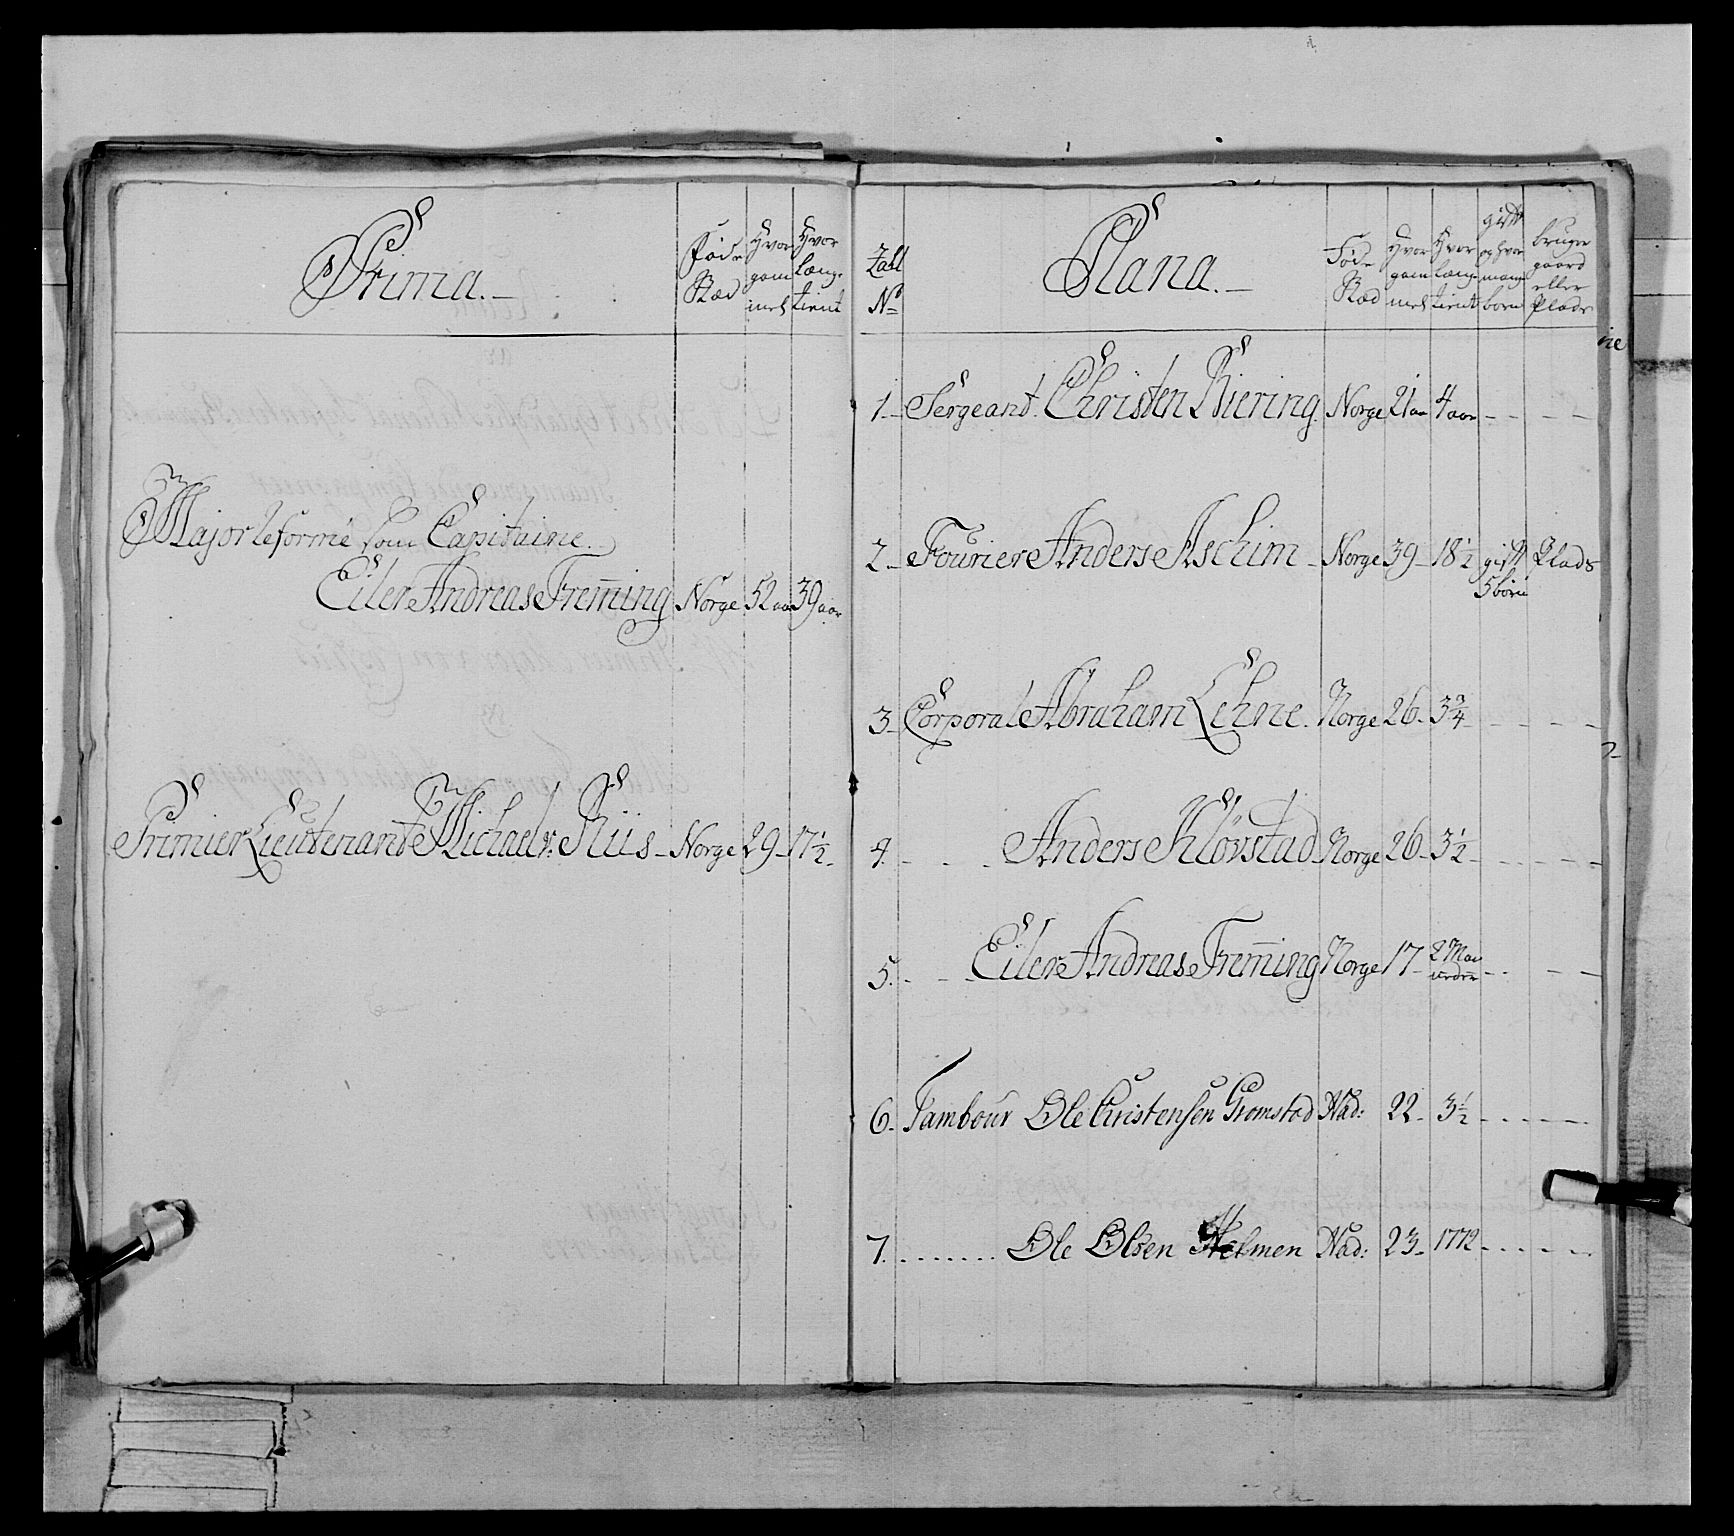 Prima.
Føde Stæd
Hvor gam̅el
Hvor længe tient
Major Reformé som Capitaine.
Eiler Andreas Frem̅ing Norge 52 aar 39 aar
Premier Lieutenant Michael v: Riis Norge 29 17½
Tahl No
Plana.
Føde Stæd
Hvor gam̅el
Hvor længe tient
gift og hvor mange børn
bruger gaard eller Plads
1. Sergeant Christen Biering Norge 21 aar 4 aar
2. Fourier Anders Aschim Norge 39 18½ gift 5 børn Plads
3. Corporal Abraham Lehne. Norge 26 3¾
4. Anders Kløvstad Norge 26 3½
5. Eiler Andreas Frem̅ing Norge 17 2 Maaneder
6. Tambour Ole Christensen Gromstad Had: 22 3½
7. Ole Olsen Helmen Had: 23 1772